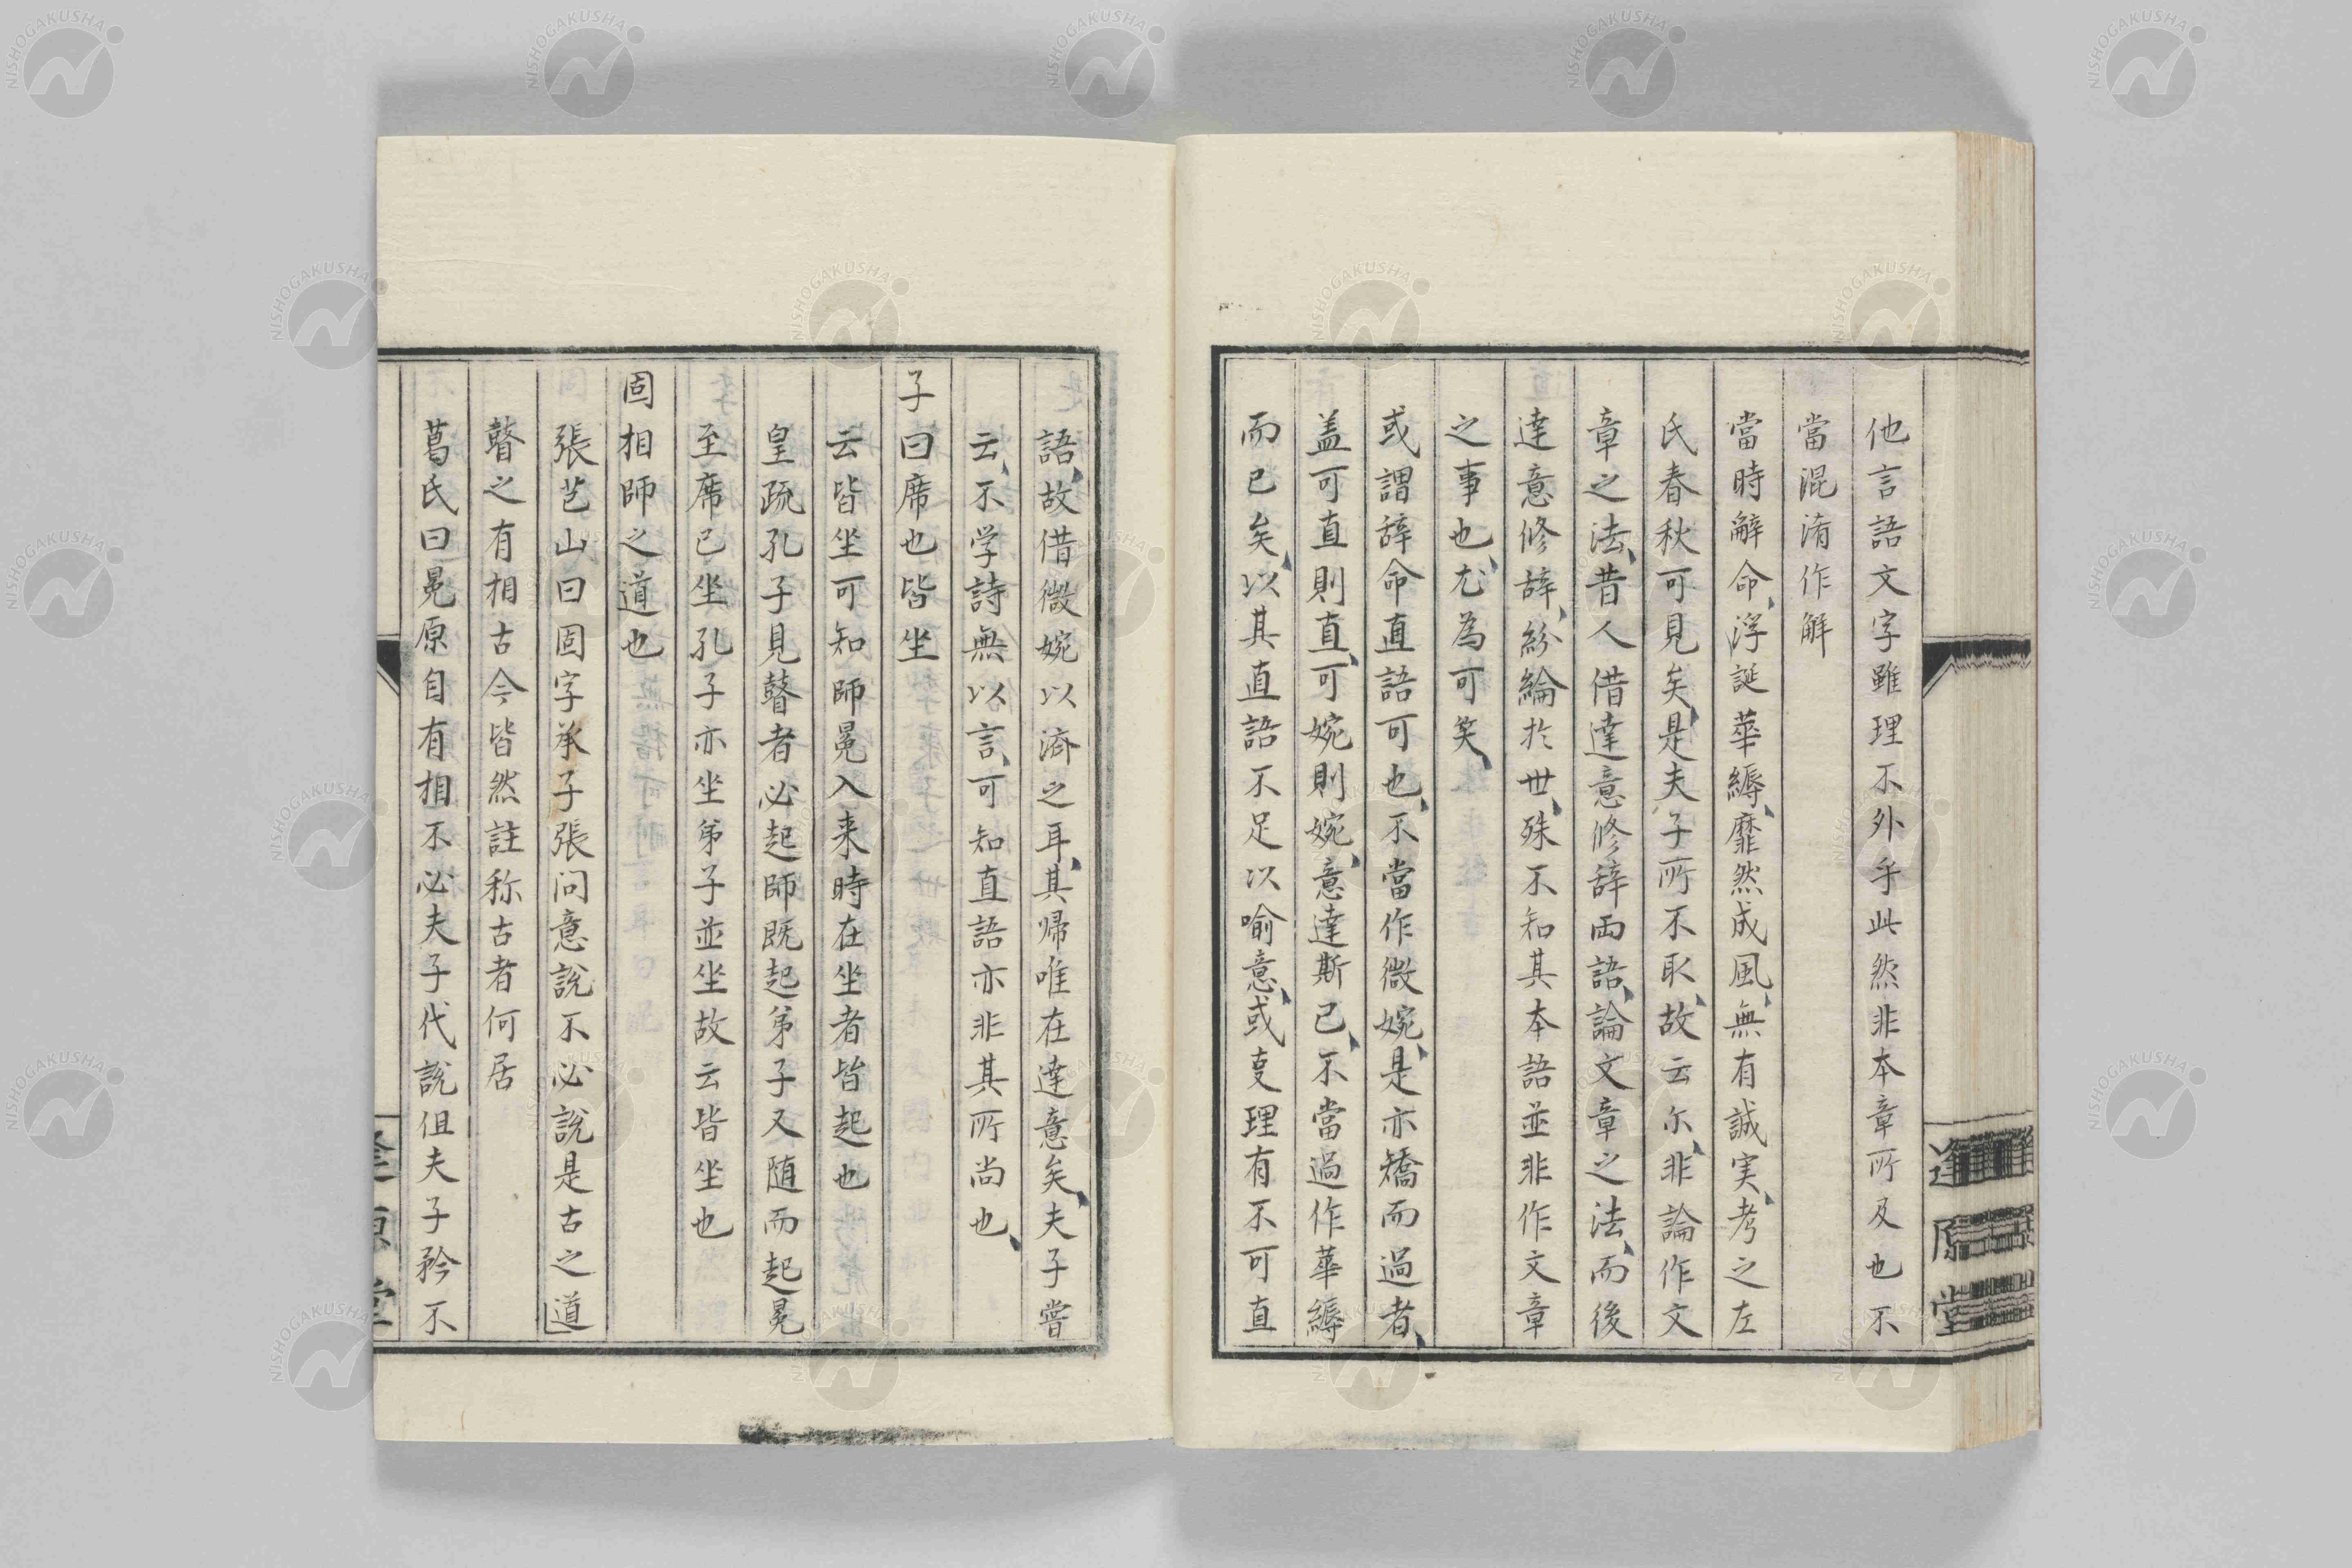 他言語文字雖理不外乎此然非本章所及也不
當混淆作解
當時辭命、浮誕華縟、靡然成風、無有誠実、考之左
氏春秋可見矣、是夫子所不取、故云尓、非論作文
章之法、昔人借達意修辞両語、論文章之法、而後
達意修辞、紛綸於世、殊不知其本語並非作文章
之事也、尤為可笑、
或謂辞命直語可也、不當作微婉、是亦矯而過者、
盖可直則直、可婉則婉、意達斯已、不當過作華縟
而已矣、以其直語不足以喻意、或叓理有不可直
逢原堂
語、故借微婉以済之耳、其帰唯在達意矣、夫子嘗
云、不学詩無以言、可知直語亦非其所尚也、
子曰席也皆坐
云皆坐可知師冕入来時在坐者皆起也
皇疏孔子見瞽者必起師既起弟子又随而起冕
至席已坐孔子亦坐弟子並坐故云皆坐也
固相師之道也
張芑山曰固字承子張问意說不必說是古之道
瞽之有相古今皆然註称古者何居
葛氏曰冕原自有相不必夫子代說但夫子矜不
NISHOGAKUSHA